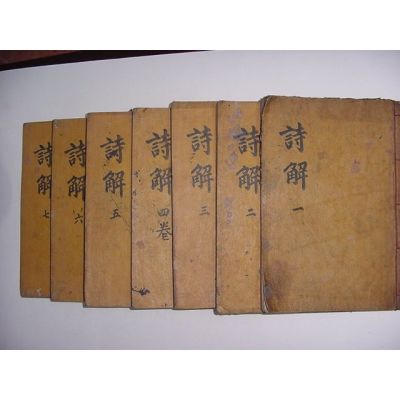 詩解 一
詩解 二
詩解 三
詩解 四巻
詩解 五
詩解 六
詩解 七